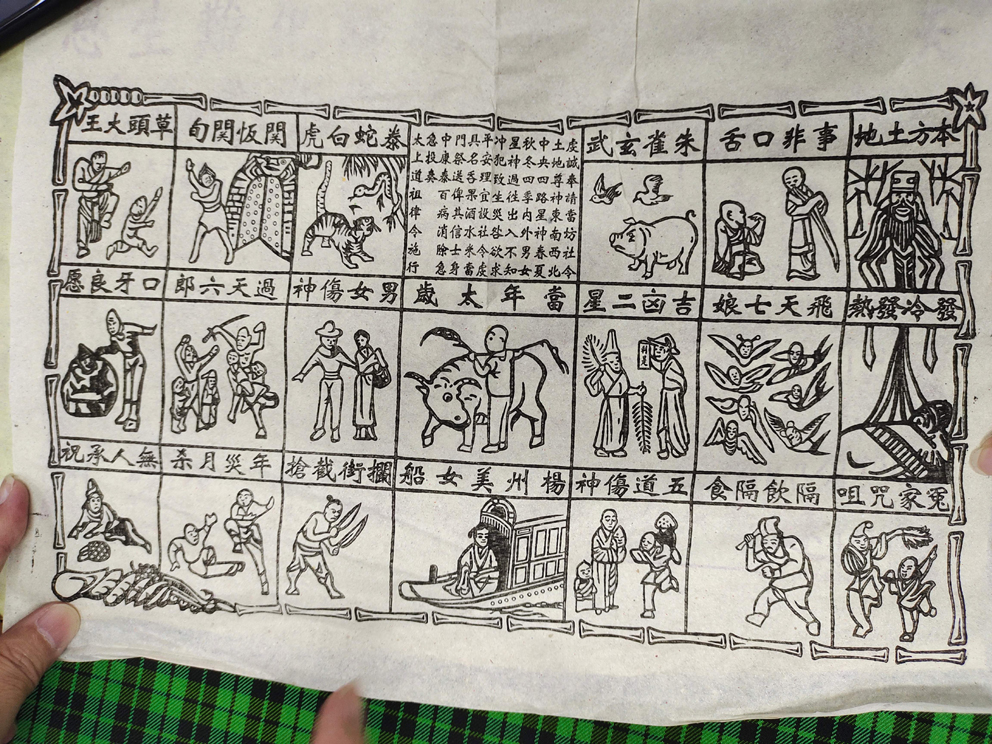 本方土地
事非口舌
朱雀玄武
虔誠奉請當坊社令
土地尊神東南西北
中央四路星神春夏
秋冬四季內外男女
星神過往出入不知
冲犯致生災咎欲求
平安理宜設社令虔
具名舌果酒水米當
門祭送俾其信士身
中康泰百病消除急
急投奏
太上道祖律令施行
泰蛇白虎
關飯關旬
草頭大王
發冷發熱
飛天七娘
吉凶二星
當年太歲
男女傷神
過天六郎
口牙良愿
冤家咒咀
隔飲隔食
五道傷神
楊州美女船
攔街截搶
年災月杀
無人承祝